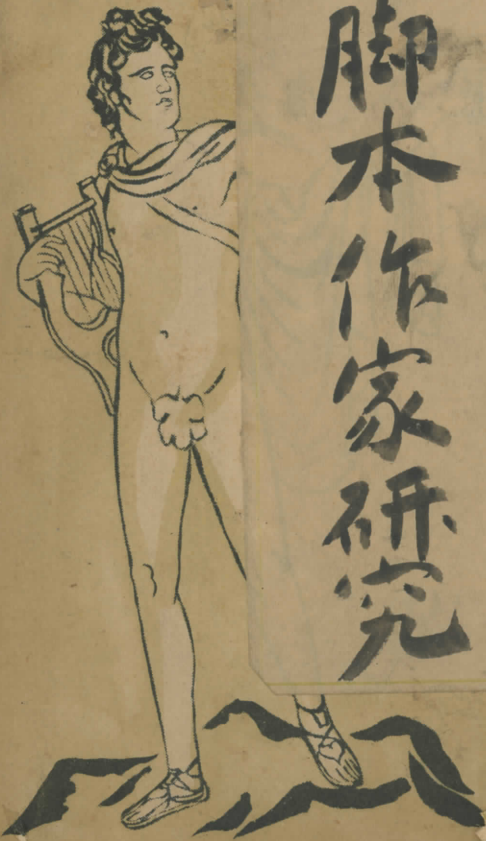 脚本作家研究